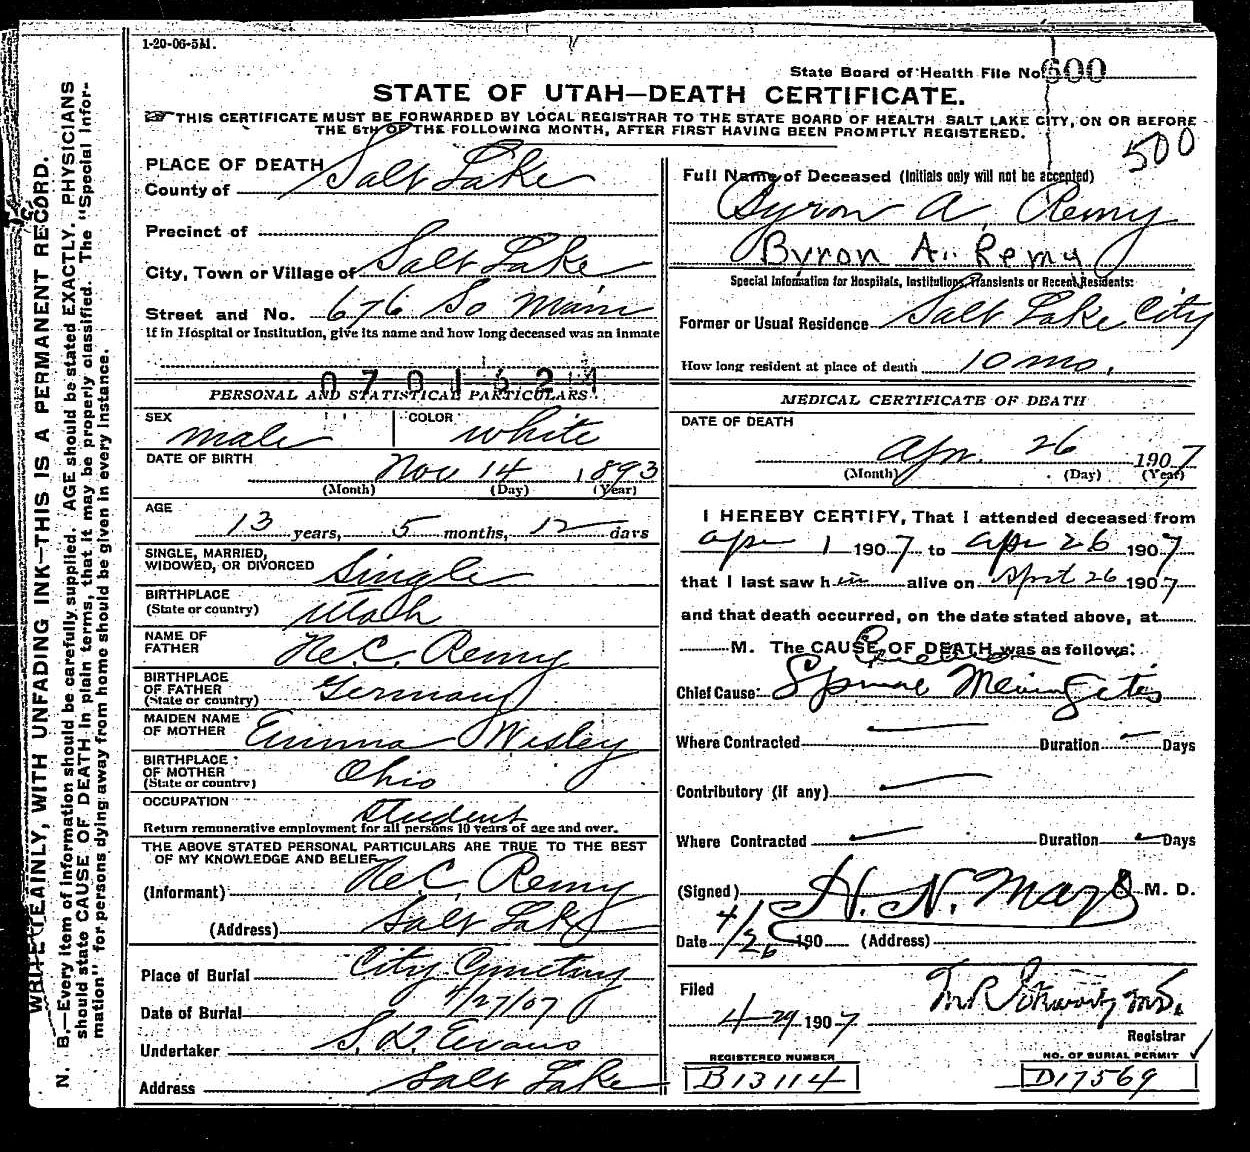 1-20-06-5M.
State Board of Health File No. 600
STATE OF UTAH—DEATH CERTIFICATE.
THIS CERTIFICATE MUST BE FORWARDED BY LOCAL REGISTRAR TO THE STATE BOARD OF HEALTH SALT LAKE CITY, ON OR BEFORE
THE 5TH OF THE FOLLOWING MONTH, AFTER FIRST HAVING BEEN PROMPTLY REGISTERED.
500
PLACE OF DEATH
County of Salt Lake
Precinct of
City, Town or Village of Salt Lake
Street and No. 676 So Main
If in Hospital or Institution, give its name and how long deceased was an inmate
PERSONAL AND STATISTICAL PARTICULARS
SEX male COLOR white
DATE OF BIRTH Nov 14 1893
(Month) (Day) (Year)
AGE
13 years, 5 months, 12 days
SINGLE, MARRIED,
WIDOWED, OR DIVORCED Single
BIRTHPLACE
(State or country) Utah
NAME OF
FATHER H.C. Remy
BIRTHPLACE
OF FATHER
(State or country) Germany
MAIDEN NAME
OF MOTHER Emma Wesley
BIRTHPLACE
OF MOTHER
(State or country) Ohio
OCCUPATION Student
Return remunerative employment for all persons 10 years of age and over.
THE ABOVE STATED PERSONAL PARTICULARS ARE TRUE TO THE BEST
OF MY KNOWLEDGE AND BELIEF
(Informant) H.C. Remy
(Address) Salt Lake
Place of Burial City Cemetery
Date of Burial 4/27/07
Undertaker S.D. Evans
Address Salt Lake
Full Name of Deceased (Initials only will not be accepted)
Byron A. Remy
Byron A. Remy
Special Information for Hospitals, Institutions, Transients or Recent Residents:
Former or Usual Residence Salt Lake City
How long resident at place of death 10 mo.
MEDICAL CERTIFICATE OF DEATH
DATE OF DEATH
Apr. 26 1907
(Month) (Day) (Year)
I HEREBY CERTIFY, That I attended deceased from
Apr 1 1907 to Apr 26 1907
that I last saw him alive on April 26 1907
and that death occurred, on the date stated above, at
M. The CAUSE OF DEATH was as follows:
Chief Cause: Spinal Meningitis
Where Contracted Duration Days
Contributory (if any)
Where Contracted Duration Days
(Signed) H. N. Mayo M. D.
Date 4/26 190 (Address)
Filed
4-29 1907
Registrar
REGISTERED NUMBER
B13114
NO. OF BURIAL PERMIT
D17569
WRITE PLAINLY, WITH UNFADING INK—THIS IS A PERMANENT RECORD.
N. B.—Every item of information should be carefully supplied. AGE should be stated EXACTLY. PHYSICIANS
should state CAUSE OF DEATH in plain terms, that it may be properly classified. The "Special Infor-
mation" for persons dying away from home should be given in every instance.